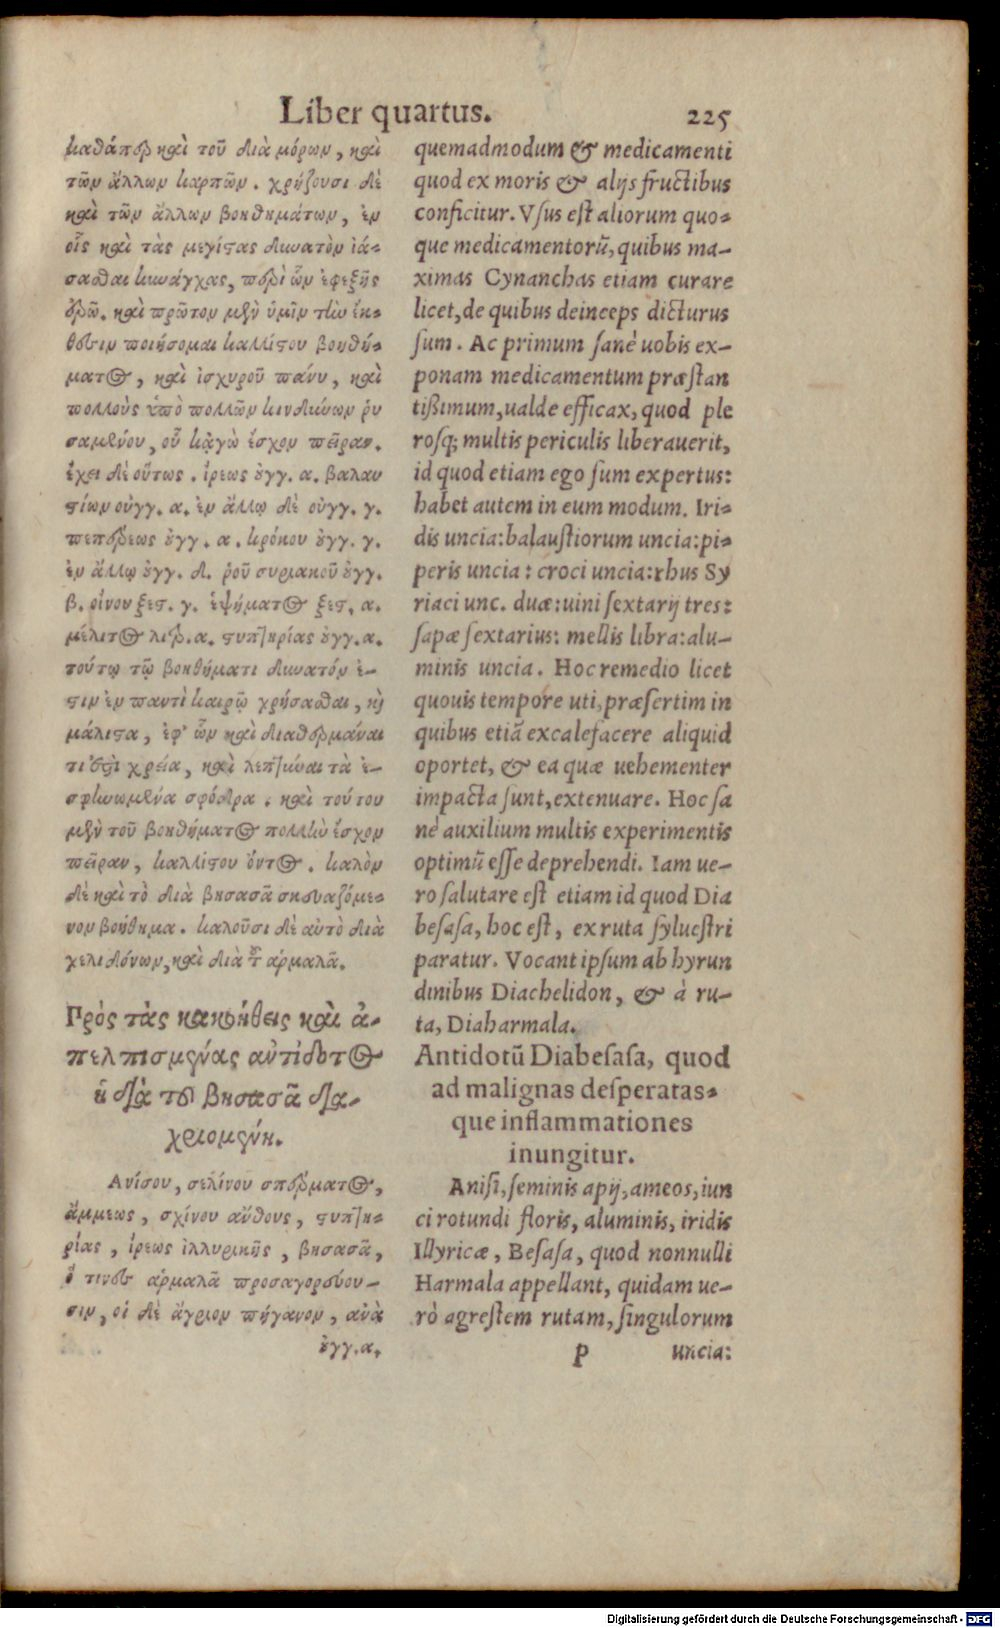 Liber quartus. 225
καθάπερ καὶ τοῦ διὰ μόρων, καὶ
τῶν ἄλλων καρπῶν. χρήζουσι δὲ
καὶ τῶν ἄλλων βοηθημάτων, ἐν
οἷς καὶ τὰς μεγίστας δυνατὸν ἰά-
σασθαι κυνάγχας, περὶ ὧν ἐφεξῆς
ἐρῶ. καὶ πρῶτον μὲν ὑμῖν τὴν ἔκ-
θεσιν ποιήσομαι καλλίστου βοηθή-
ματος, καὶ ἰσχυροῦ πάνυ, καὶ
πολλοὺς ὑπὸ πολλῶν κινδύνων ῥυ
σαμένου, οὗ κἀγὼ ἔσχον πεῖραν.
ἔχει δὲ οὕτως. ἴρεως οὐγγ. α. βαλαυ
στίων οὐγγ. α. ἐν ἄλλῳ δὲ οὐγγ. γ.
πεπέρεως οὐγγ. α. κρόκου οὐγγ. γ.
ἐν ἄλλῳ οὐγγ. δ. ῥοῦ συριακοῦ οὐγγ.
β. οἴνου ξεστ. γ. ἑψήματος ξεστ. α.
μέλιτος λιτρ. α. στυπτηρίας οὐγγ. α.
τούτῳ τῷ βοηθήματι δυνατόν ἐ-
στιν ἐν παντὶ καιρῷ χρήσασθαι, καὶ
μάλιστα, ἐφ' ὧν καὶ διαθερμάναι
τι ἐστὶ χρεία, καὶ λεπτῦναι τὰ ἐ-
σφηνωμένα σφόδρα. καὶ τούτου
μὲν τοῦ βοηθήματος πολλὴν ἔσχον
πεῖραν, καλλίστου ὄντος. καλὸν
δὲ καὶ τὸ διὰ βησασᾶ σκευαζόμε-
νον βοήθημα. καλοῦσι δὲ αὐτὸ διὰ
χελιδόνων, καὶ διὰ τοῦ ἁρμαλᾶ.
Πρὸς τὰς κακοήθεις καὶ ἀ-
πελπισμένας ἀντίδοτος
ἡ διὰ τοῦ βησασᾶ δια-
χριομένη.
Ανίσου, σελίνου σπέρματος,
ἄμμεως, σχίνου ἄνθους, στυπτη-
ρίας, ἴρεως ἰλλυρικῆς, βησασᾶ,
ὅ τινες ἁρμαλᾶ προσαγορεύου-
σιν, οἱ δὲ ἄγριον πήγανον, ἀνὰ
οὐγγ. α.
quemadmodum & medicamenti
quod ex moris & alijs fructibus
conficitur. Vsus est aliorum quo-
que medicamentorũ, quibus ma-
ximas Cynanchas etiam curare
licet, de quibus deinceps dicturus
sum. Ac primum sanè uobis ex-
ponam medicamentum præstan
tißimum, ualde efficax, quod ple
rosq; multis periculis liberauerit,
id quod etiam ego sum expertus:
habet autem in eum modum. Iri-
dis uncia: balaustiorum uncia: pi-
peris uncia: croci uncia: rhus Sy
riaci unc. duæ: uini sextarij tres:
sapæ sextarius: mellis libra: alu-
minis uncia. Hoc remedio licet
quouis tempore uti, præsertim in
quibus etiã excalefacere aliquid
oportet, & ea quæ uehementer
impacta sunt, extenuare. Hoc sa
nè auxilium multis experimentis
optimũ esse deprehendi. Iam ue-
ro salutare est etiam id quod Dia
besasa, hoc est, ex ruta syluestri
paratur. Vocant ipsum ab hyrun
dinibus Diachelidon, & à ru-
ta, Diaharmala.
Antidotũ Diabesasa, quod
ad malignas desperatas-
que inflammationes
inungitur.
Anisi, seminis apij, ameos, iun
ci rotundi floris, aluminis, iridis
Illyricæ, Besasa, quod nonnulli
Harmala appellant, quidam ue-
rò agrestem rutam, singulorum
p uncia:
Digitalisierung gefördert durch die Deutsche Forschungsgemeinschaft - DFG